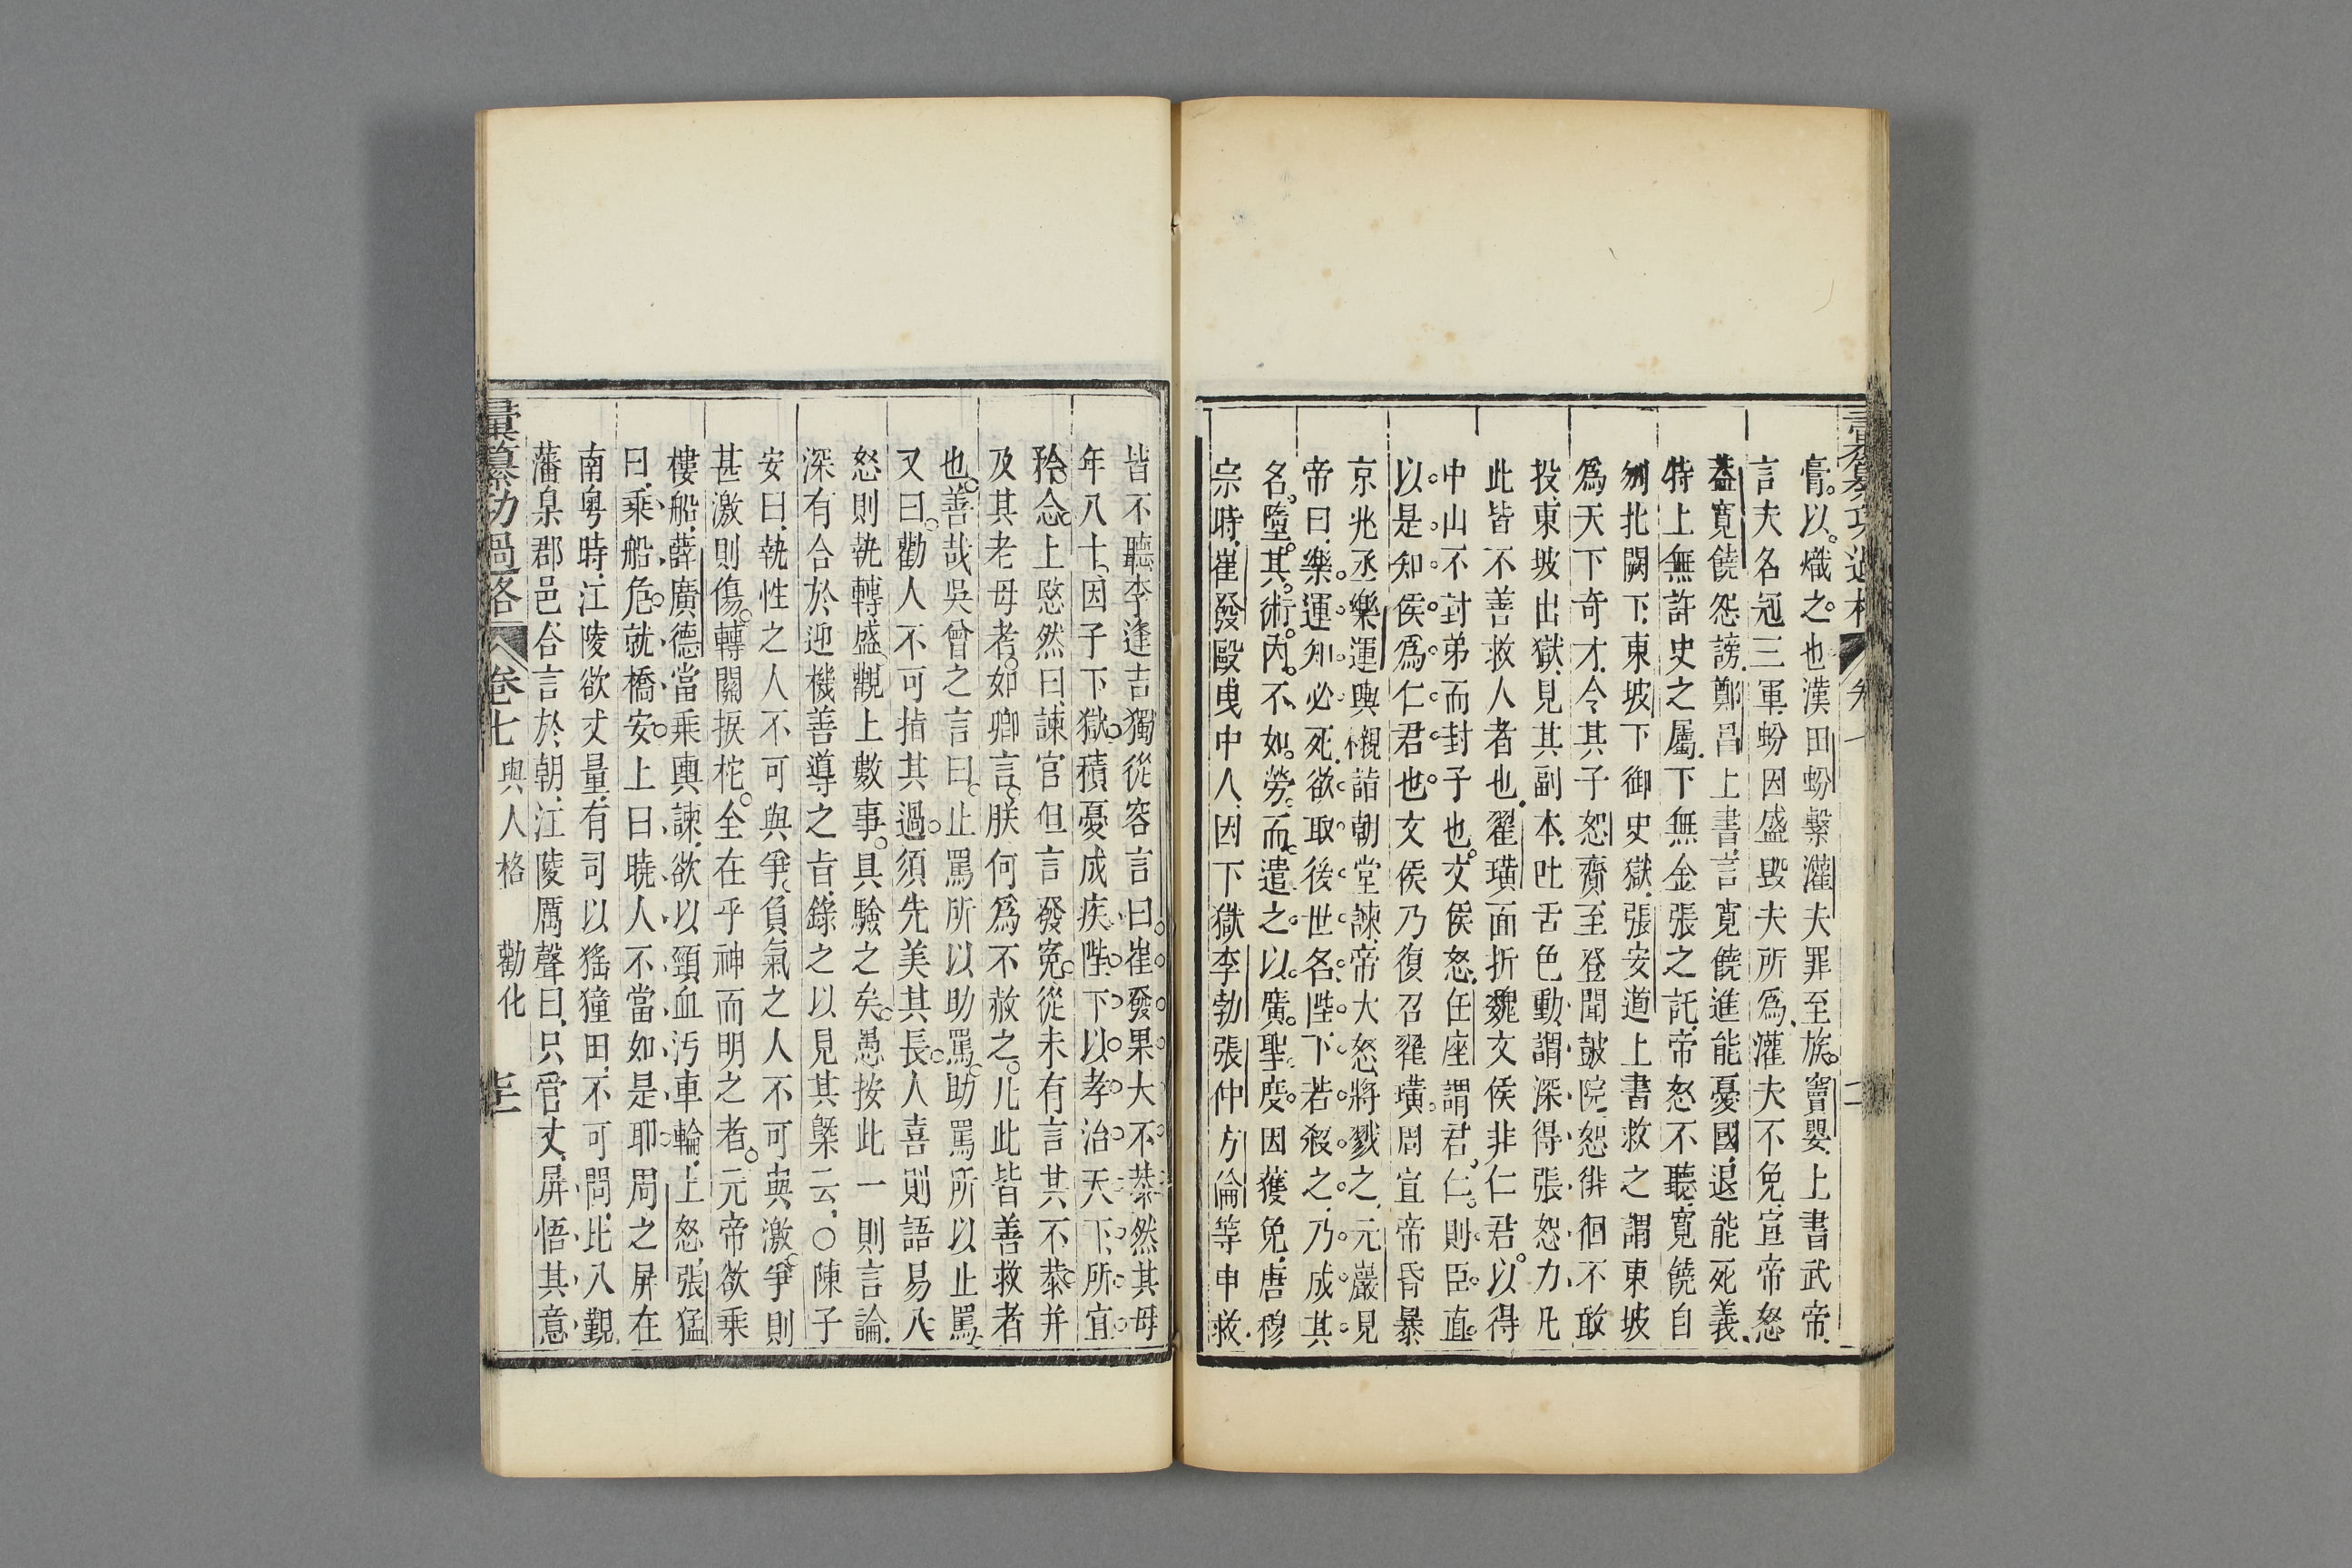 膏以熾之也漢田蚡槩灌夫罪至族竇嬰上書武帝
言夫名冠三軍蚡因盛毀夫所爲灌夫不免宣帝怒
葢寬饒怨謗鄭昌上書言寬饒進能憂國退能死義
特上無許史之屬下無金張之託帝怒不聽寬饒自
刎北闕下東坡下御史獄張安道上書救之謂東坡
爲天下奇才令其子恕齎至登聞皷院恕徘徊不敢
投東坡出獄見其副本吐舌色動謂深得張恕力凡
此皆不善救人者也翟璜面折魏文侯非仁君以得
中山不封弟而封子也文侯怒任座謂君仁則臣直
以是知侯爲仁君也文侯乃復召翟璜周宣帝昏暴
京兆丞樂運輿櫬詣朝堂諫帝大怒將戮之元巖見
帝曰樂運知必死欲取後世名陛下若殺之乃成其
名墮其術內不如勞而遣之以廣聖度因獲免唐穆
宗時崔發毆曳中人因下獄李勃張仲方倫等申救
皆不聽李逢吉獨從容言曰崔發果大不恭然其母
年八十因子下獄積憂成疾陛下以孝治天下所宜
矜念上愍然曰諫官但言發寃從未有言其不恭并
及其老母者如卿言朕何爲不赦之凡此皆善救者
也善哉吳曾之言曰止罵所以助罵助罵所以止罵
又曰勸人不可指其過須先美其長人喜則語易入
怒則執轉盛觀上數事具驗之矣愚按此一則言論
深有合於迎機善導之旨錄之以見其槩云○陳子
安曰執性之人不可與爭負氣之人不可與激爭則
甚激則傷轉關捩柁全在乎神而明之者元帝欲乘
樓船薛廣德當乘輿諫欲以頸血汚車輪上怒張猛
曰乘船危就橋安上曰曉人不當如是耶周之屏在
南粵時江陵欲丈量有司以猺獞田不可問比入覲
藩臬郡邑合言於朝江陵厲聲曰只管丈屏悟其意
彙纂功過格 卷七 與人格 勸化